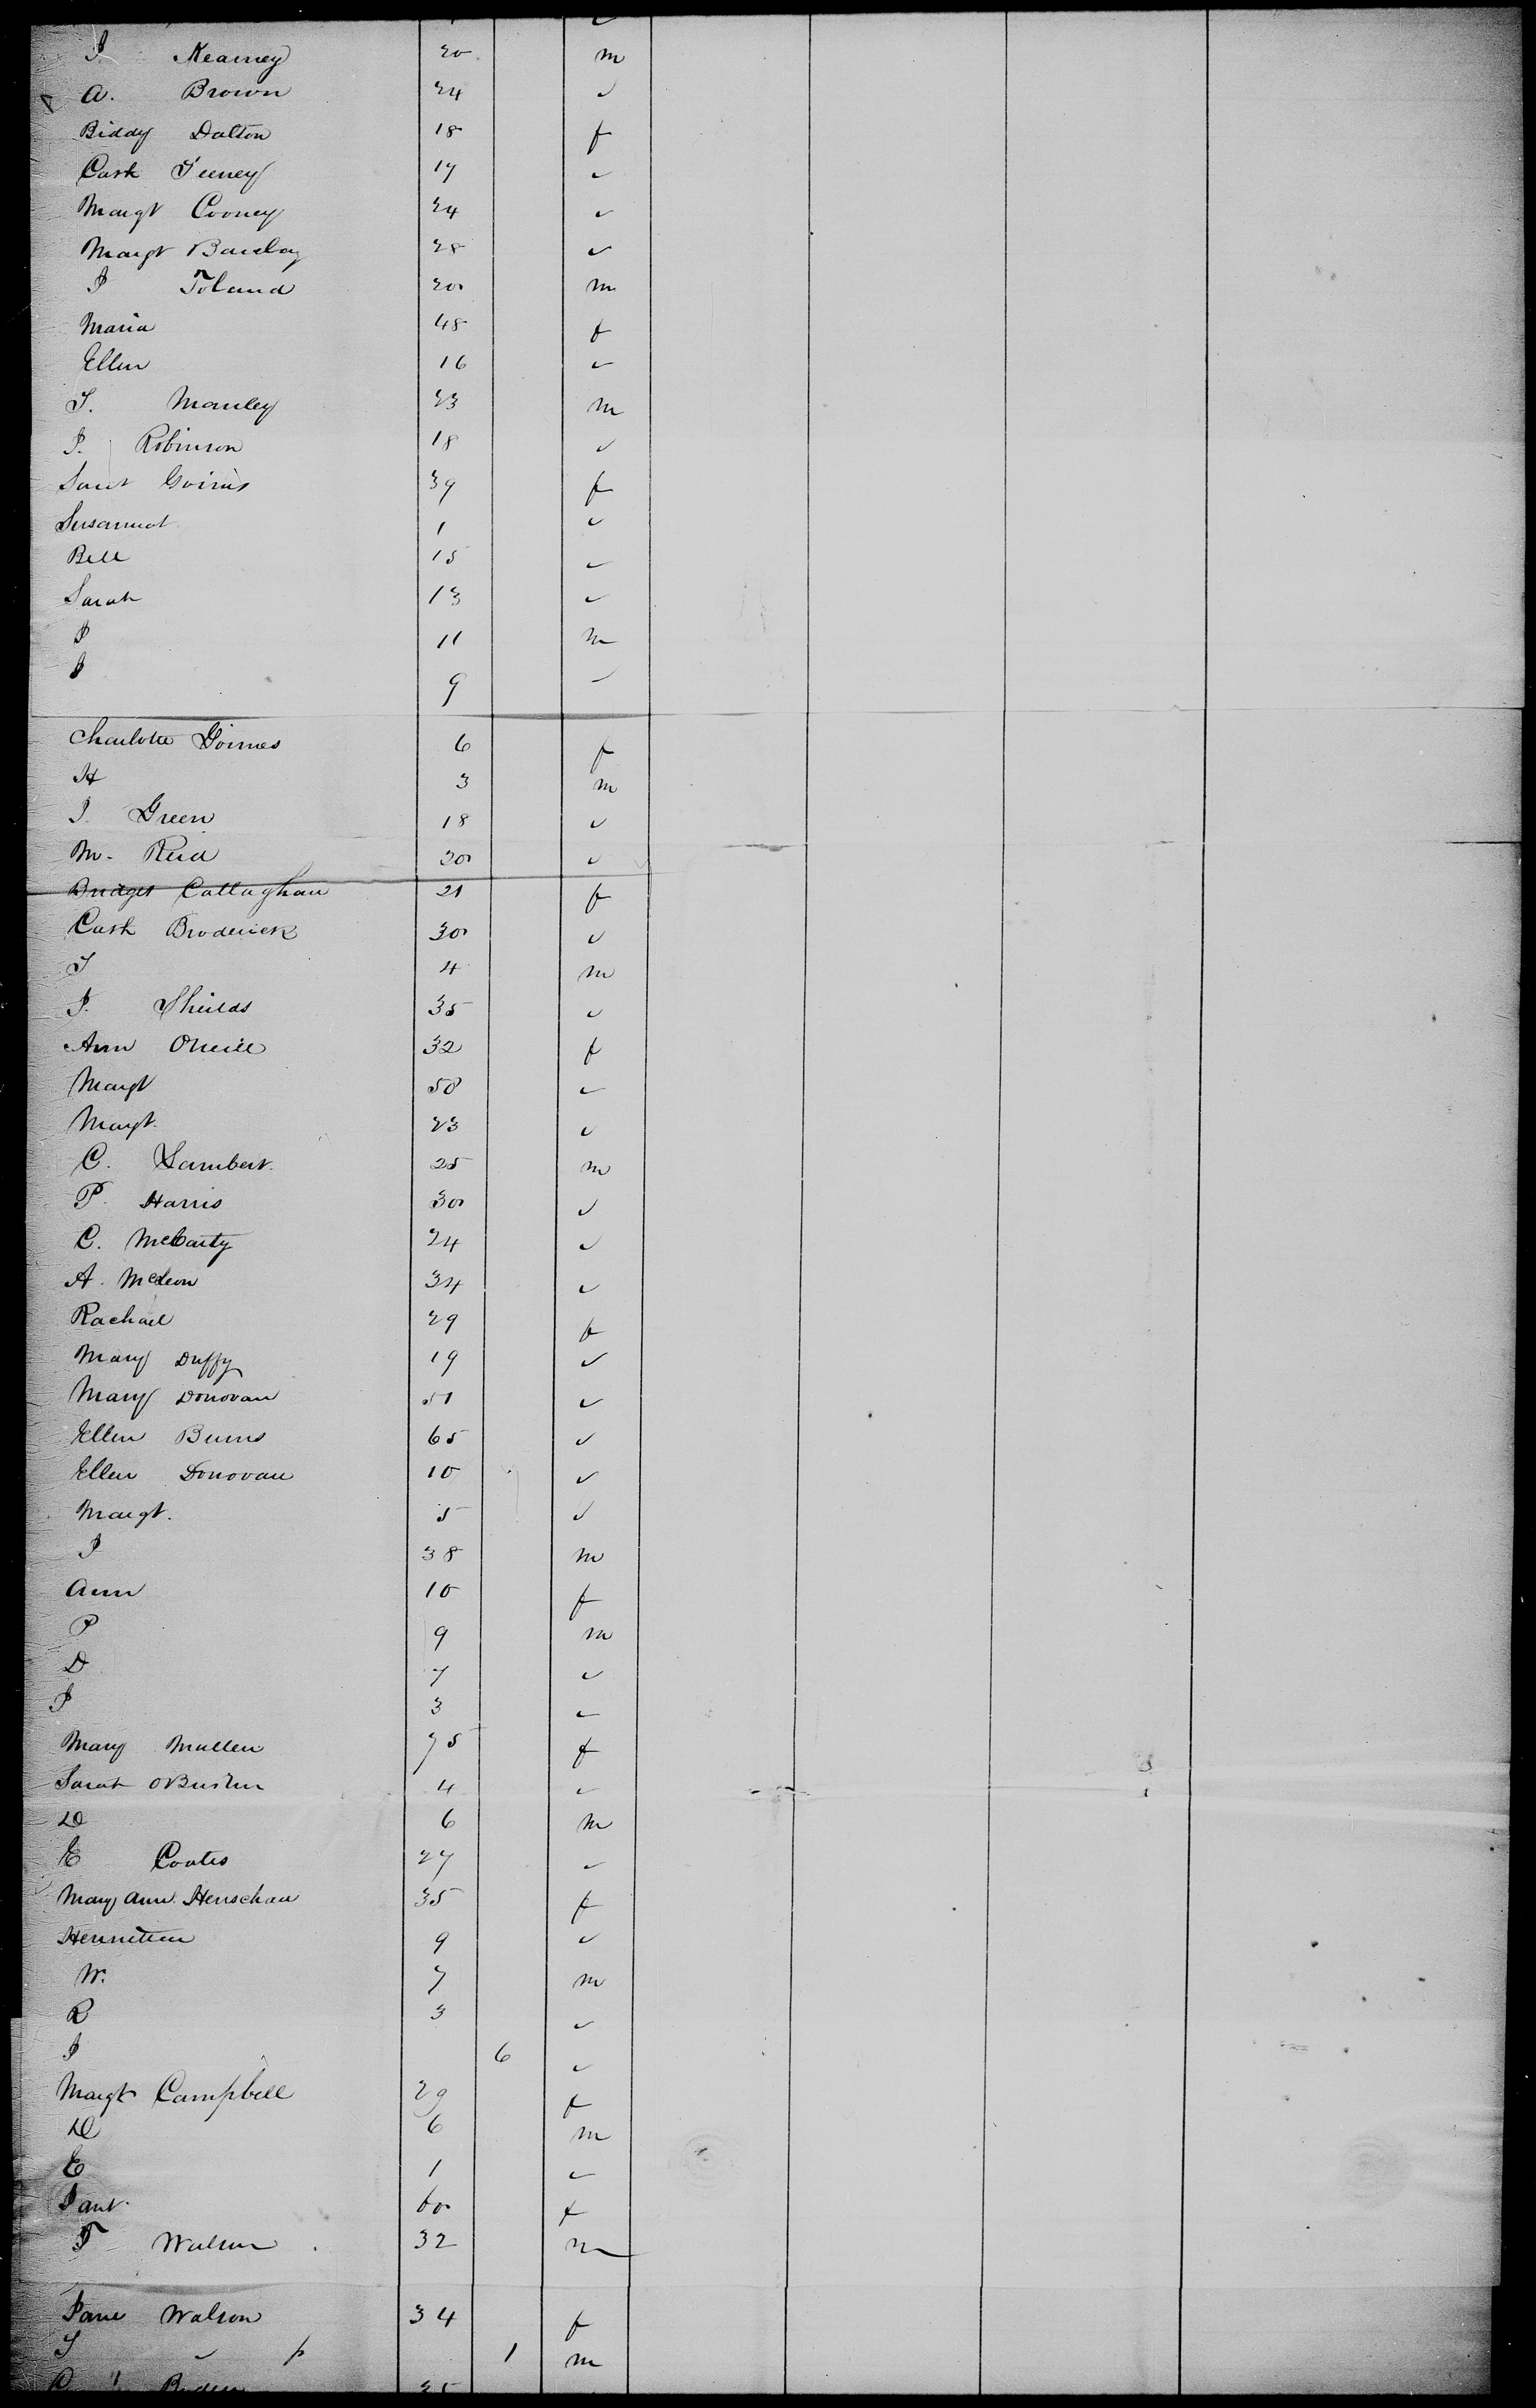 J Kearney 20 m
A. Brown 24 ✓
Biddy Dalton 18 f
Cath Feeney 17 ✓
Margt Cooney 24 ✓
Margt Barclay 28 ✓
J Toland 20 m
Maria 48 f
Ellen 16 ✓
T. Manley 23 m
J. Robinson 18 ✓
39 f
1 ✓
Bell 15 ✓
Sarah 13 ✓
J 11 m
J 9 ✓
Charlotte 6 f
H 3 m
J. Green 18 ✓
M. Reid 20 ✓
Bridget Callaghan 21 f
Cath Broderick 30 ✓
T 4 m
J. Sheilds 35 ✓
Ann ONeill 32 f
Margt 50 ✓
Margt. 23 ✓
C. Lambert. 25 m
P. Harris 30 ✓
C. McCarty 24 ✓
A. 34 ✓
Rachael 29 f
Mary Duffy 19 ✓
Mary Donovan 51 ✓
Ellen Burns 65 ✓
Ellen Donovan 10 ✓
Margt. 5 ✓
J 38 m
Ann 10 f
P 9 m
D 7 ✓
J 3 ✓
Mary Mullen 75 f
Sarah 4 ✓
D 6 m
E Coates 27 ✓
Mary Ann Henschan 35 f
9 ✓
W. 7 m
R 3 ✓
J 6 ✓
Margt Campbell 29 f
D 6 m
E 1 ✓
60 f
T 32 m
Jane Walson 34 f
J ✓ 1 m